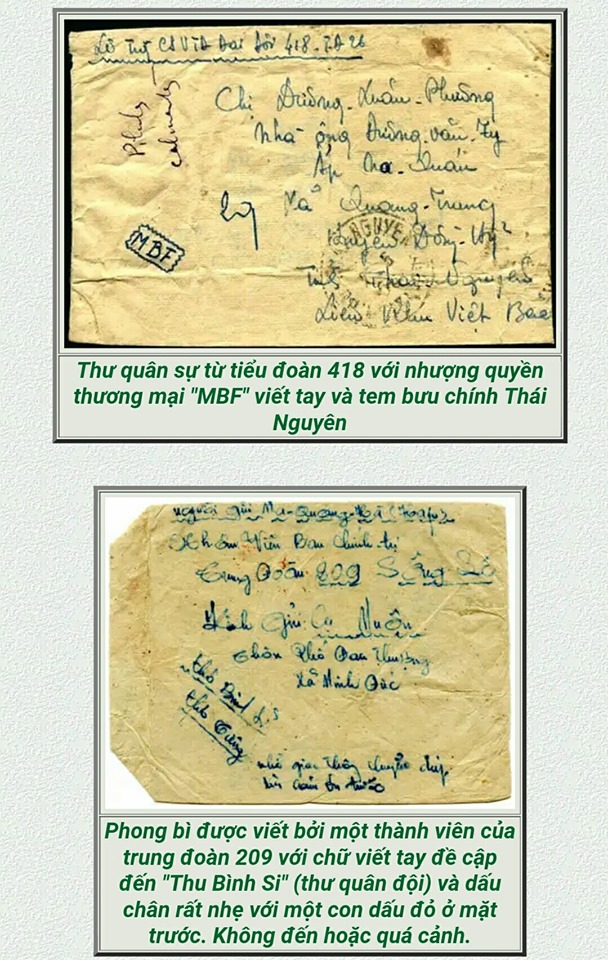 418
Chị Đường-Xuân-Phương
Nhà ông Đường-văn-Ty
Ấp Na-Quán
Xã Quang-Trung
Huyện Đồng-Hỷ
Tỉnh Thái-Nguyên
Liên Khu Việt Bắc
MBF
NGUYE
Thư quân sự từ tiểu đoàn 418 với nhượng quyền
thương mại "MBF" viết tay và tem bưu chính Thái
Nguyên
người gửi Ma-Quang
Nhân Viên Ban Chính trị
Trung Đoàn 209 Sông Lô
Kính gửi: Cụ Muôn
thôn Phố Đan Thượng
Xã Minh Đức
thơ Binh Sĩ
nhờ giao thông chuyển
Phong bì được viết bởi một thành viên của
trung đoàn 209 với chữ viết tay đề cập
đến "Thu Bình Si" (thư quân đội) và dấu
chân rất nhẹ với một con dấu đỏ ở mặt
trước. Không đến hoặc quá cảnh.